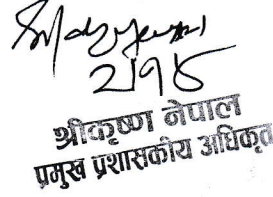 २।१८
श्रीकृष्ण नेपाल
प्रमुख प्रशासकीय अधिकृत